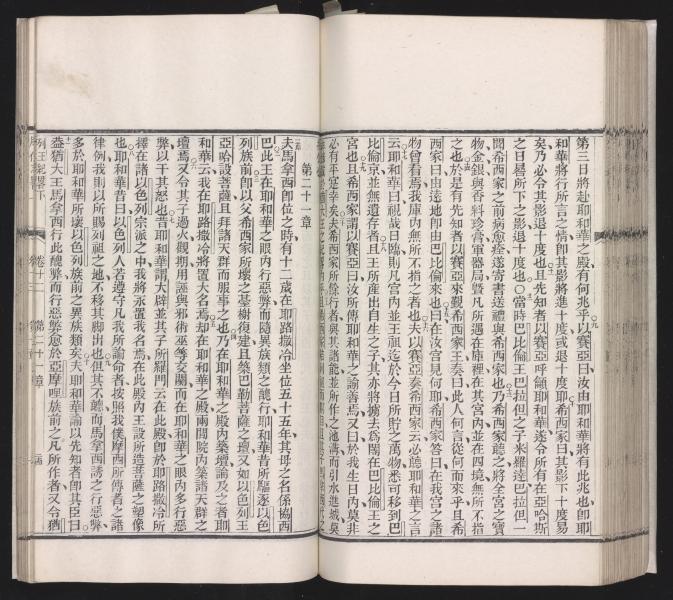 第三日將赴耶和華之殿有何兆乎以賽亞曰汝由耶和華將有此兆也卽耶
和華將行所言之情卽其影將進十度或退十度耶希西家曰其影下十度易
矣乃必令其影退十度也且先知者以賽亞呼籲耶和華遂令所有在亞哈斯
之日晷所下之影退十度也○當時巴比倫王巴拉但之子米羅達巴拉但一
聞希西家之前病愈痊遂寄書送禮與希西家也乃希西家聽之將全宮之寶
物金銀與香料珍膏軍器局曁凡所遇在庫裡在其宮內並在四境無所不指
之也於是有先知者以賽亞來觐希西家王奏曰此人何言從何而來乎且希
西家曰由遠地卽由巴比倫來也曰在汝宮見何耶希西家答曰在我宮之諸
物曾看焉我庫內無所不指之者也夫以賽亞奏希西家云必聽耶和華之言
云耶和華曰視哉日臨則凡宮內並王祖迄於今日所貯之萬物悉可移到巴
比倫京並無遺存者且夫王所產出自生之子其亦將擄去爲閹在巴比倫王之
宮也且希西家謂以賽亞曰汝所傳耶和華之諭善焉又曰於我生日內莫非
必有平寔幸矣夫希西家所餘行者與其諸能並所作之池溝而引水進城莫
第二十一章
夫馬拿西卽位之時有十二歲在耶路撒冷坐位五十五年其母之名係協西
巴此王在耶和華之眼內行惡弊而隨異族類之醜行耶和華昔所驅逐以色
列族前卽以父希西家所壞之墓樹復建且築巴勒菩薩之壇又如以色列王
亞哈設菩薩且拜諸天群而服事之也乃在耶和華之殿內築壇論及之者耶
和華云我在耶路撒冷將置大名焉却在耶和華之殿兩間院內築諸天群之
壇焉又令其子過火觀期用誣與邪術巫等交關而在耶和華之眼內多行惡
弊以干其怒也昔耶和華謂大辟並其子所羅門云在此殿卽於耶路撒冷所
擇在諸以色列宗派之中我將永置我名焉在此殿內王設所造菩薩之塑像
也耶和華昔曰以色列人若遵守凡我所諭命者按照我僕摩西所傳者之諸
律例我則以所賜列祖之地不移其脚出也但其不聽而馬拿西誘之行惡弊
多於耶和華所壞以色列族前之異族類矣夫耶和華諭以先知者卽其臣曰
蓋猶大王馬拿西行此醜弊而行惡弊愈於亞摩哩族前之凡所作者又令猶
列王紀畧下 卷十二 第二十一章